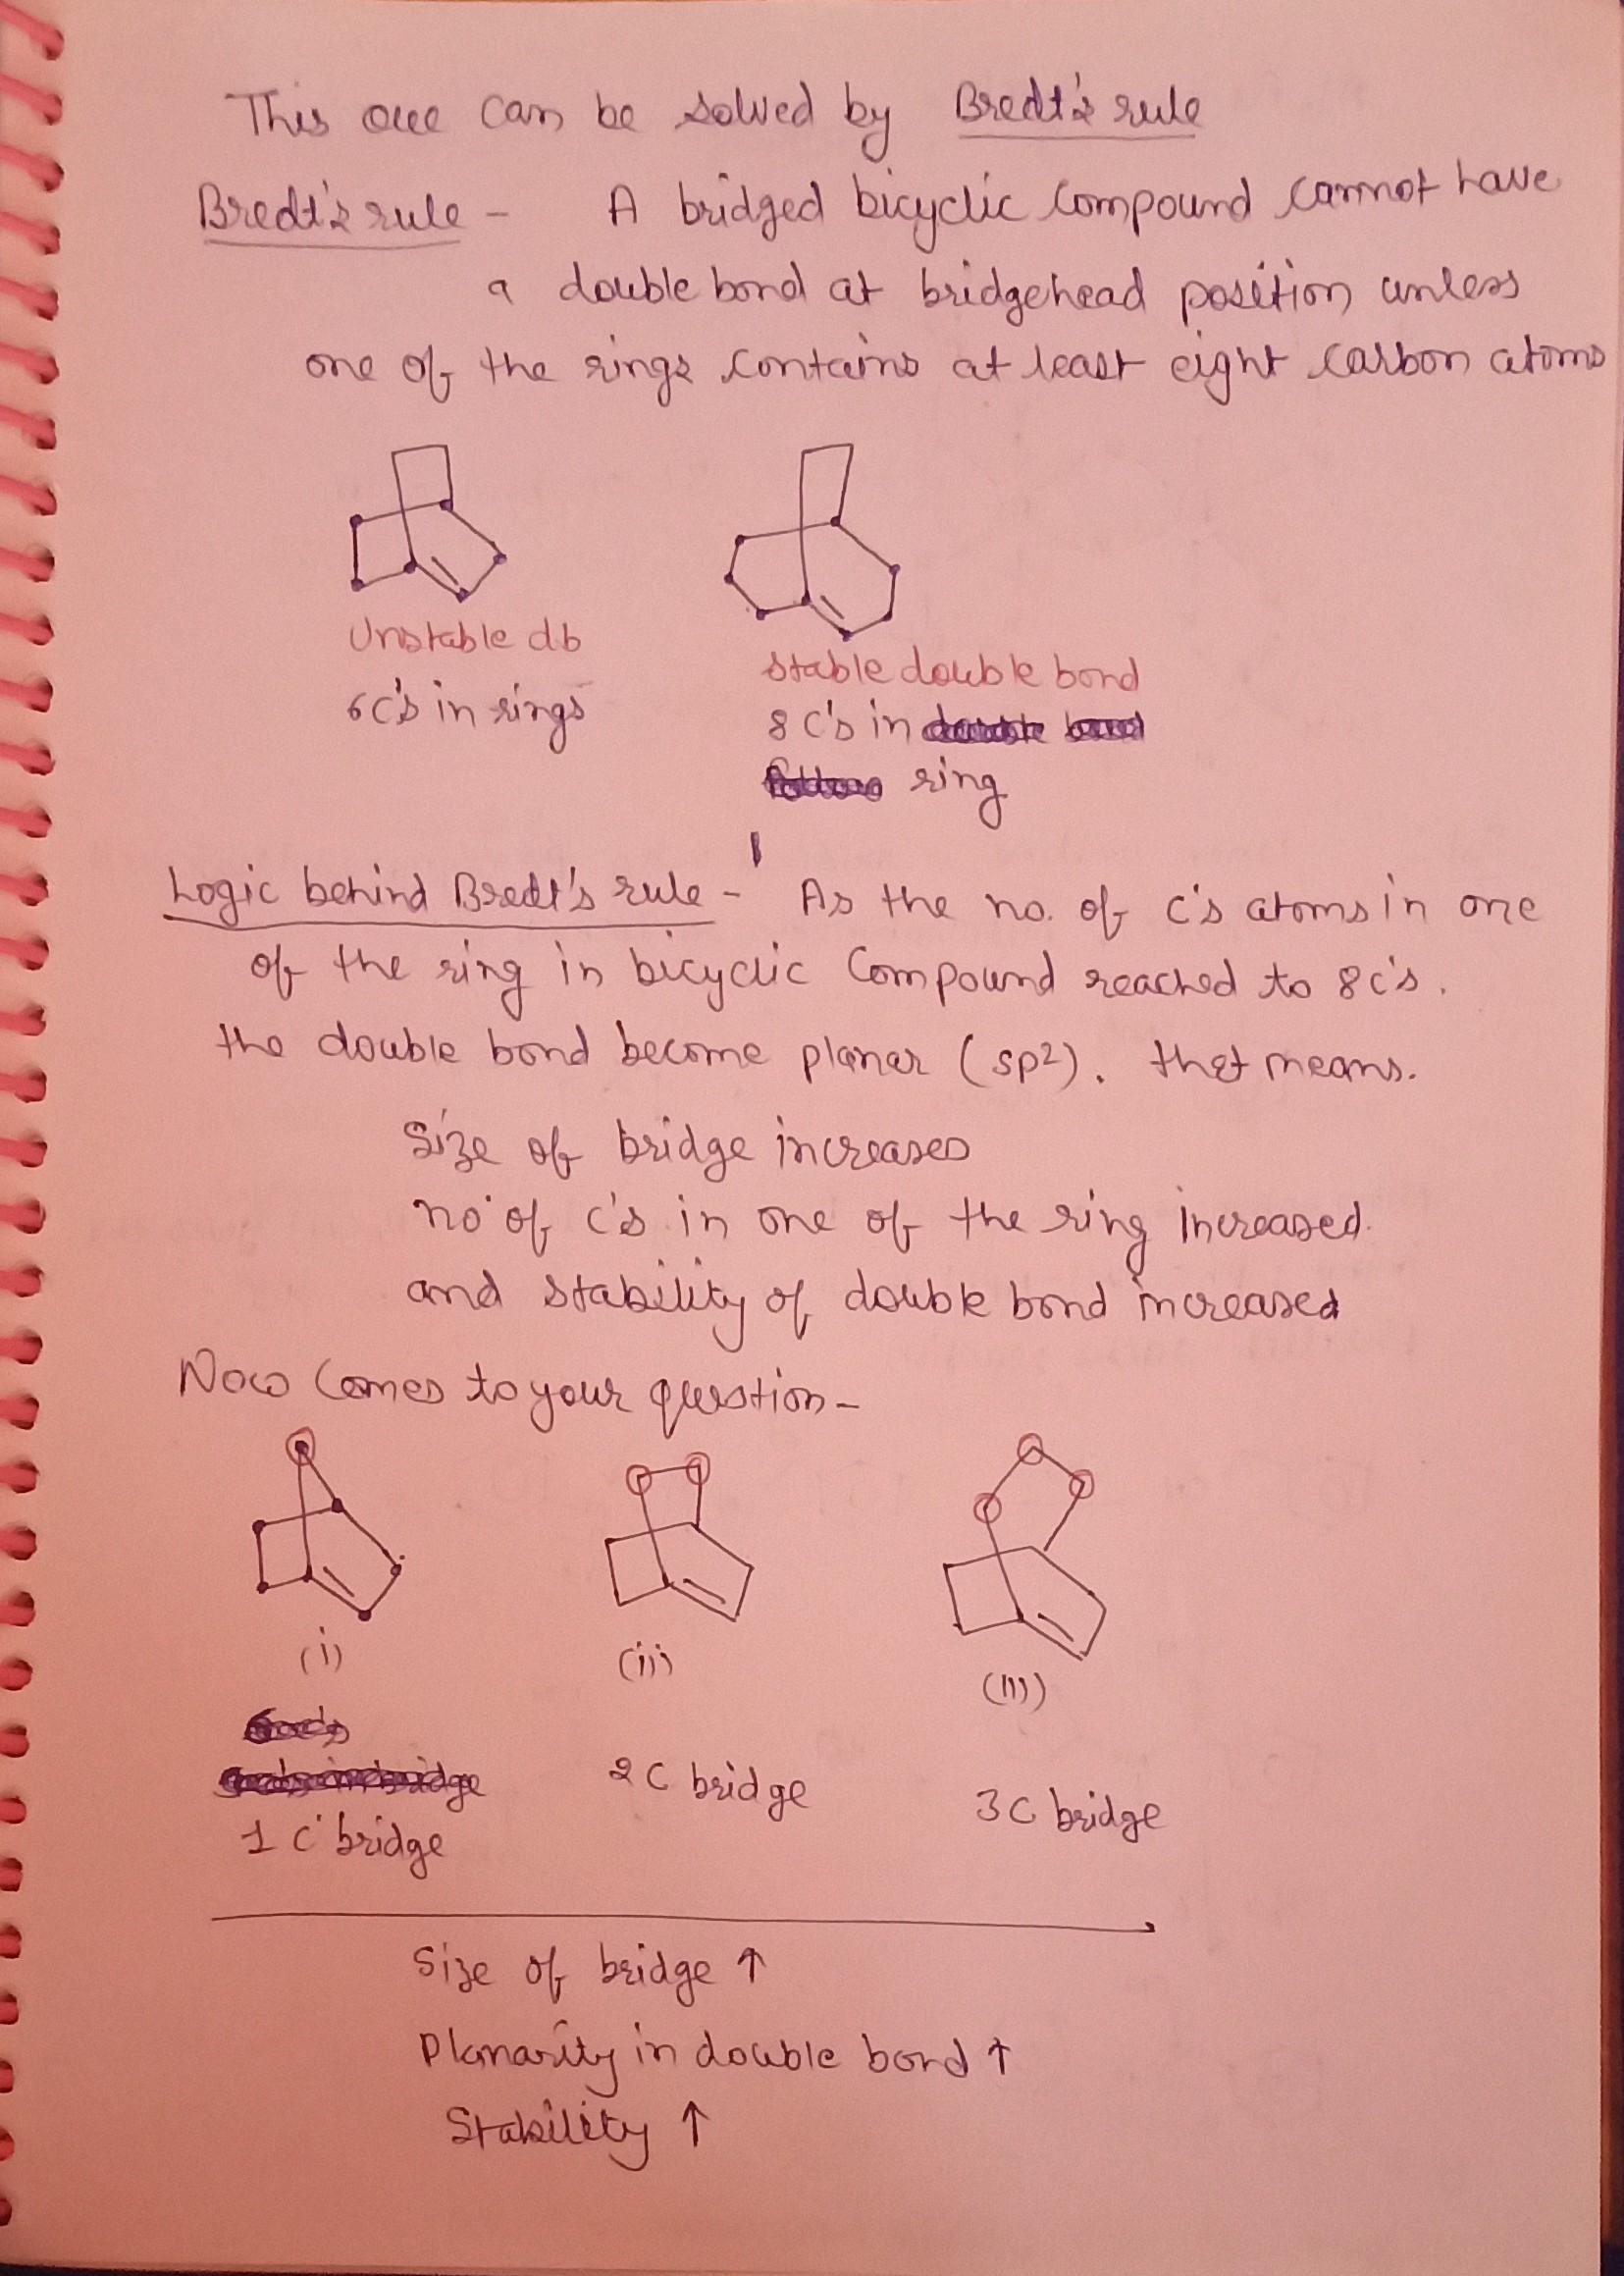 This one can be solved by Bredt's rule
Bredt's rule - A bridged bicyclic compound cannot have
a double bond at bridgehead position unless
one of the rings contains at least eight carbon atoms
Unstable db
stable double bond
6C's in rings
8 C's in
ring
Logic behind Bredt's rule - As the no. of C's atoms in one
of the ring in bicyclic Compound reached to 8C's.
the double bond become planar (sp²). that means.
Size of bridge increases
no of C's in one of the ring increased.
and stability of double bond increased
Now Comes to your question -
(i) (ii) (iii)
1 C bridge 2 C bridge 3 C bridge
Size of bridge ↑
Planarity in double bond ↑
Stability ↑